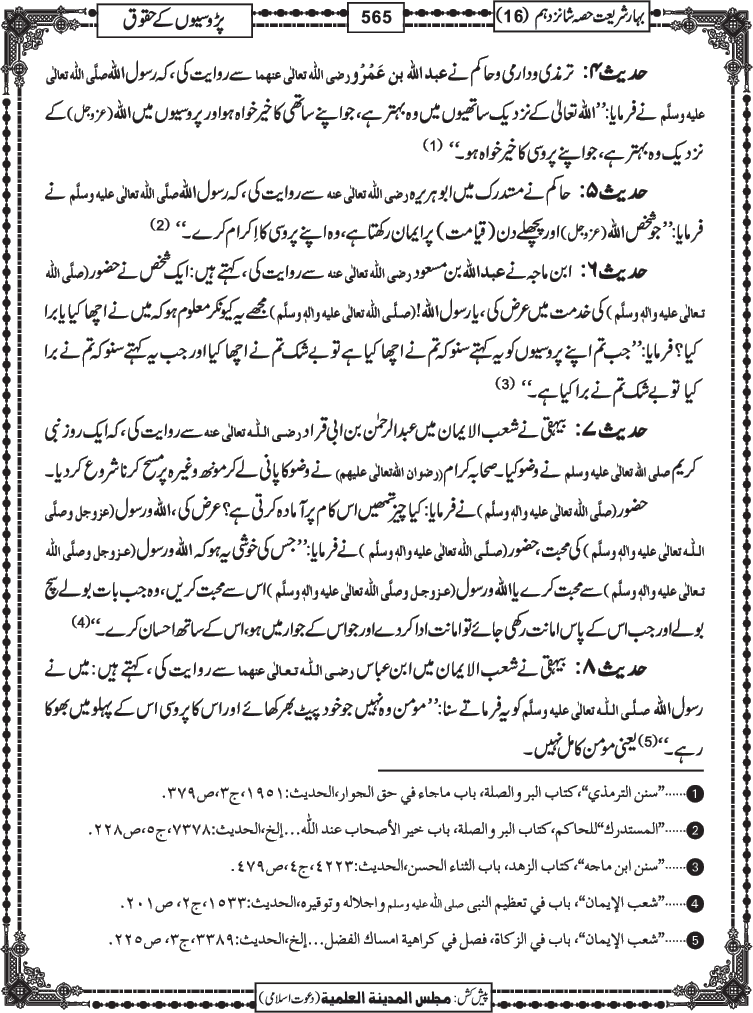 بہارِ شریعت حصہ شانزدہم (16)
565
پڑوسیوں کے حقوق
حدیث ۴: ترمذی و دارمی و حاکم نے عبداللہ بن عَمْرْو رضی اللہ تعالٰی عنهما سے روایت کی، کہ رسول اللہ صلَّی اللہ تعالٰی
علیہ وسلَّم نے فرمایا: ’’اللہ تعالٰی کے نزدیک ساتھیوں میں وہ بہتر ہے، جو اپنے ساتھی کا خیر خواہ ہو اور پروسیوں میں اللہ (عزوجل) کے
نزدیک وہ بہتر ہے، جو اپنے پروسی کا خیر خواہ ہو۔‘‘ (1)
حدیث ۵: حاکم نے مستدرک میں ابوہریرہ رضی اللہ تعالٰی عنہ سے روایت کی، کہ رسول اللہ صلَّی اللہ تعالٰی علیہ وسلَّم نے
فرمایا: ’’جو شخص اللہ (عزوجل) اور پچھلے دن (قیامت) پر ایمان رکھتا ہے، وہ اپنے پروسی کا اِکرام کرے۔‘‘ (2)
حدیث ۶: ابن ماجہ نے عبداللہ بن مسعود رضی اللہ تعالٰی عنہ سے روایت کی، کہتے ہیں: ایک شخص نے حضور (صلَّی اللہ
تعالٰی علیہ واٰلہٖ وسلَّم) کی خدمت میں عرض کی، یا رسول اللہ! (صلَّی اللہ تعالٰی علیہ واٰلہٖ وسلَّم) مجھے یہ کیونکر معلوم ہو کہ میں نے اچھا کیا یا برا
کیا؟ فرمایا: ’’جب تم اپنے پروسیوں کو یہ کہتے سنو کہ تم نے اچھا کیا ہے تو بے شک تم نے اچھا کیا اور جب یہ کہتے سنو کہ تم نے برا
کیا تو بے شک تم نے برا کیا ہے۔‘‘ (3)
حدیث ۷: بیہقی نے شعب الایمان میں عبدالرحمٰن بن ابی قراد رضی اللہ تعالٰی عنہ سے روایت کی، کہ ایک روز نبی
کریم صلی اللہ تعالٰی علیہ وسلم نے وضو کیا۔ صحابہ کرام (رضوان اللہ تعالٰی علیهم) نے وضو کا پانی لے کر مونھ وغیرہ پر مسح کرنا شروع کردیا۔
حضور (صلَّی اللہ تعالٰی علیہ واٰلہٖ وسلَّم) نے فرمایا: کیا چیز تمھیں اس کام پر آمادہ کرتی ہے؟ عرض کی، اللہ و رسول (عزوجل وصلَّی
اللہ تعالٰی علیہ واٰلہٖ وسلَّم) کی محبت، حضور (صلَّی اللہ تعالٰی علیہ واٰلہٖ وسلَّم) نے فرمایا: ’’جس کی خوشی یہ ہو کہ اللہ و رسول (عزوجل وصلَّی اللہ
تعالٰی علیہ واٰلہٖ وسلَّم) سے محبت کرے یا اللہ و رسول (عزوجل وصلَّی اللہ تعالٰی علیہ واٰلہٖ وسلَّم) اس سے محبت کریں، وہ جب بات بولے سچ
بولے اور جب اس کے پاس امانت رکھی جائے تو امانت ادا کردے اور جو اس کے جوار میں ہو، اس کے ساتھ احسان کرے۔‘‘(4)
حدیث ۸: بیہقی نے شعب الایمان میں ابن عباس رضی اللہ تعالٰی عنهما سے روایت کی، کہتے ہیں: میں نے
رسول اللہ صلَّی اللہ تعالٰی علیہ وسلَّم کو یہ فرماتے سنا: ’’مومن وہ نہیں جو خود پیٹ بھر کھائے اور اس کا پروسی اس کے پہلو میں بھوکا
رہے۔‘‘(5) یعنی مومن کامل نہیں۔
1 ......”سنن الترمذي“، كتاب البر والصلة، باب ماجاء في حق الجوار، الحديث: ١٩٥١، ج٣، ص٣٧٩.
2 ......”المستدرك“ للحاكم، كتاب البر والصلة، باب خير الأصحاب عند اللّٰه...إلخ، الحديث: ٧٣٧٨، ج٥، ص٢٢٨.
3 ......”سنن ابن ماجه“، كتاب الزهد، باب الثناء الحسن، الحديث: ٤٢٢٣، ج٤، ص٤٧٩.
4 ......”شعب الإيمان“، باب في تعظيم النبی صلی اللہ علیہ وسلم واجلاله وتوقيره، الحديث: ١٥٣٣، ج٢، ص٢٠١.
5 ......”شعب الإيمان“، باب في الزكاة، فصل في كراهية امساك الفضل...إلخ، الحديث: ٣٣٨٩، ج٣، ص٢٢٥.
پیش کش: مجلس المدينة العلمية (دعوتِ اسلامی)